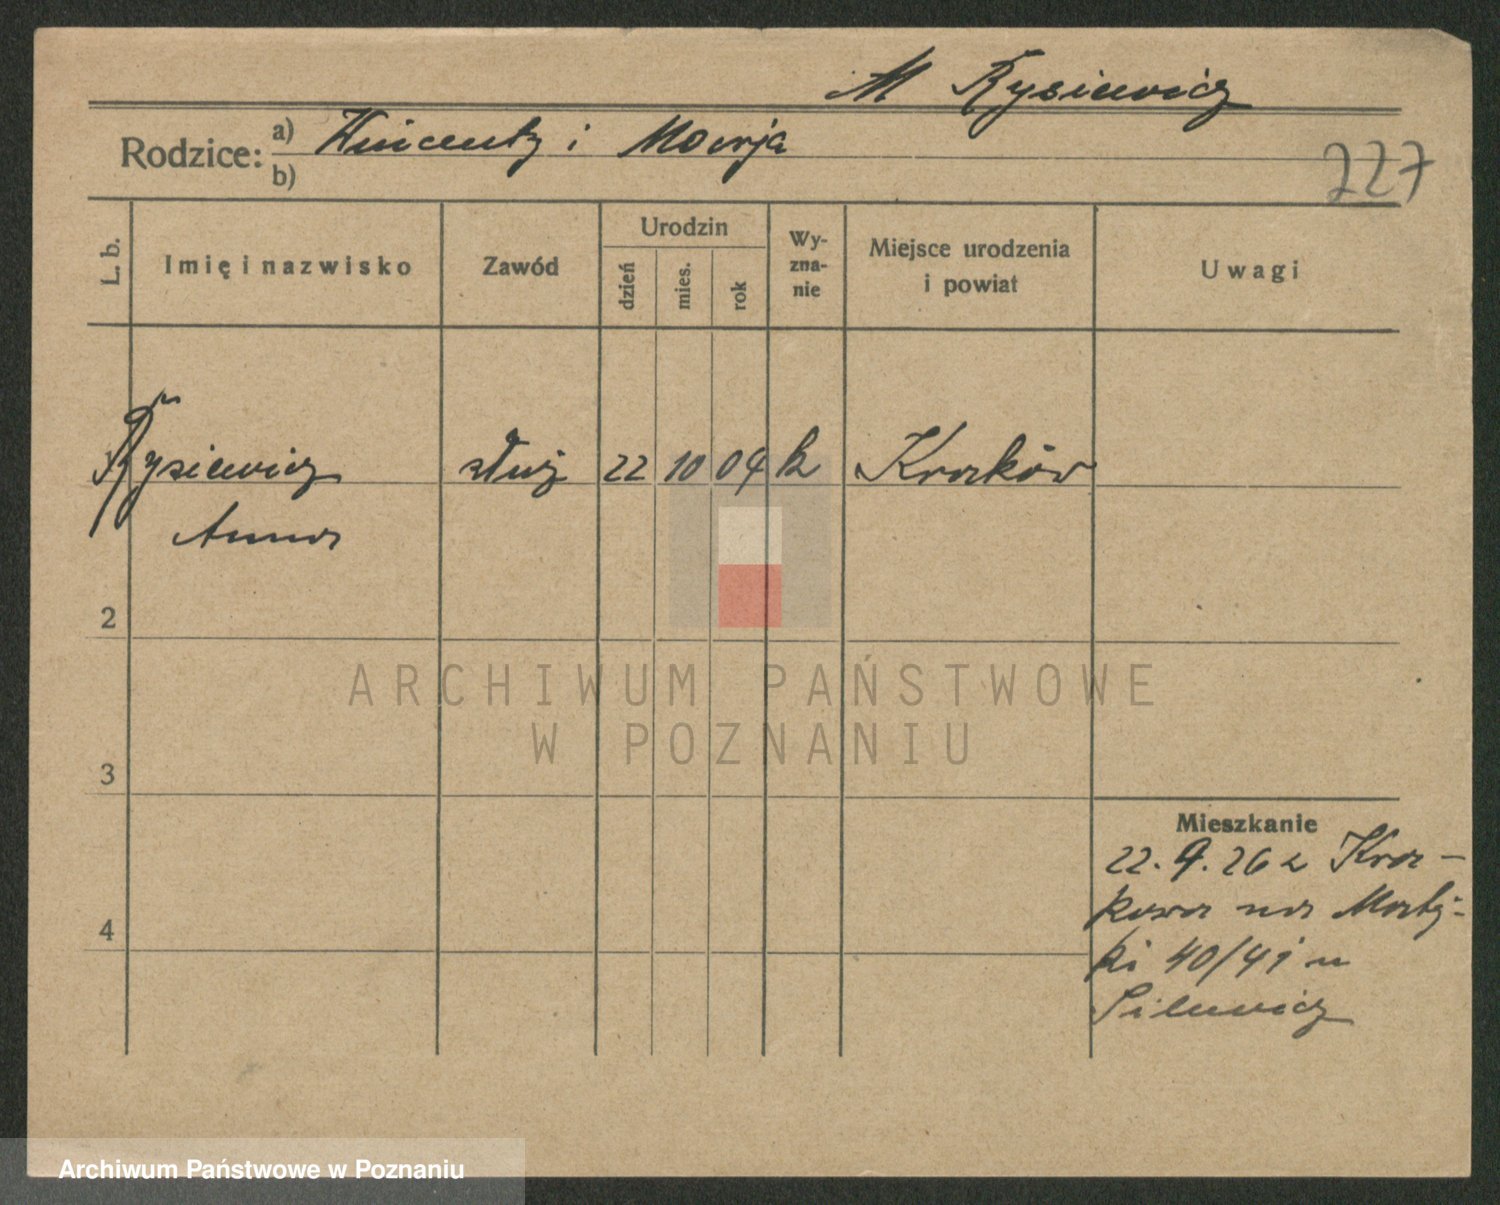 M Rysiewicz
Rodzice: a) Wincenty i Marja
b)
227
L. b.
Imię i nazwisko
Zawód
Urodzin
dzień
mies.
rok
Wy-
zna-
nie
Miejsce urodzenia
i powiat
Uwagi
Rysiewicz służ 22 10 04 k Kraków
Anna
2
3
4
Mieszkanie
22. 9. 26 z Kra-
kowa na Matej-
ki 40/41 u
ARCHIWUM PAŃSTWOWE
W POZNANIU
Archiwum Państwowe w Poznaniu